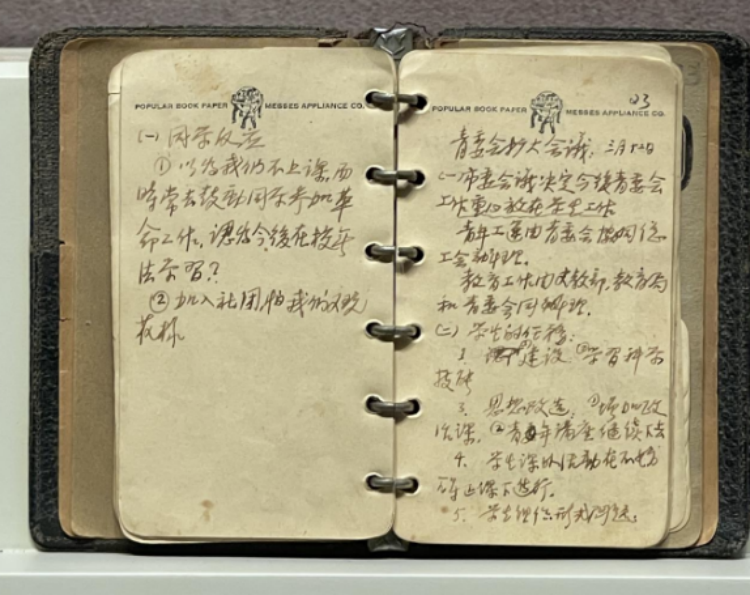 POPULAR BOOK PAPER MESSES APPLIANCE CO.
(一) 同学反应
① 以为我们不上课,而
常去鼓动同学参加革
命工作, 今後在校
学习?
② 加入社团怕我们
POPULAR BOOK PAPER MESSES APPLIANCE CO.
青委会扩大会议: 三月
(一) 市委会议决定今後青委会
工作重心放在学生工作
青年工运由青委会
工会办理.
教育工作由文教部, 教育局
和青委会同办理.
(二) 学生的任务:
1. 建设 ②学习科学
3. 思想改造: ①增加政
治课, ②青年讲座继续
4. 学生课外活动在不妨
碍正课下进行.
5. 学生组织形式问题.